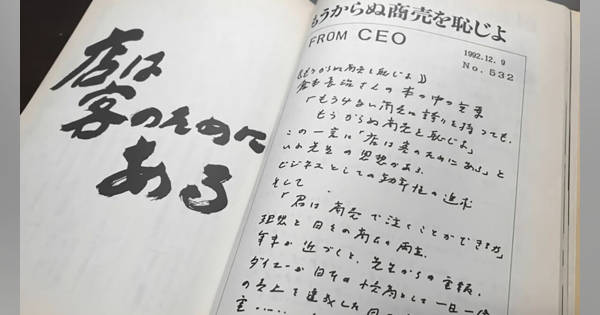 店は
客のために
ある
もうからぬ商売を恥じよ
FROM CEO
1992.12.9
No.532
《もうからぬ商売を恥じよ》
倉本長治さんの本の中の言葉
「もうけない商売に誇りを持っても、
もうからぬ商売を恥じよ」
この一言に「店は客のためにある」と
いう先生の思想がある。
ビジネスとしての効率性の追求
そして、
「君は商売で泣くことができるか」
理想と日々の商売の両立。
年末が近づくと、先生からの
ダイエーが日本の として一日一億
の売上を達成した日